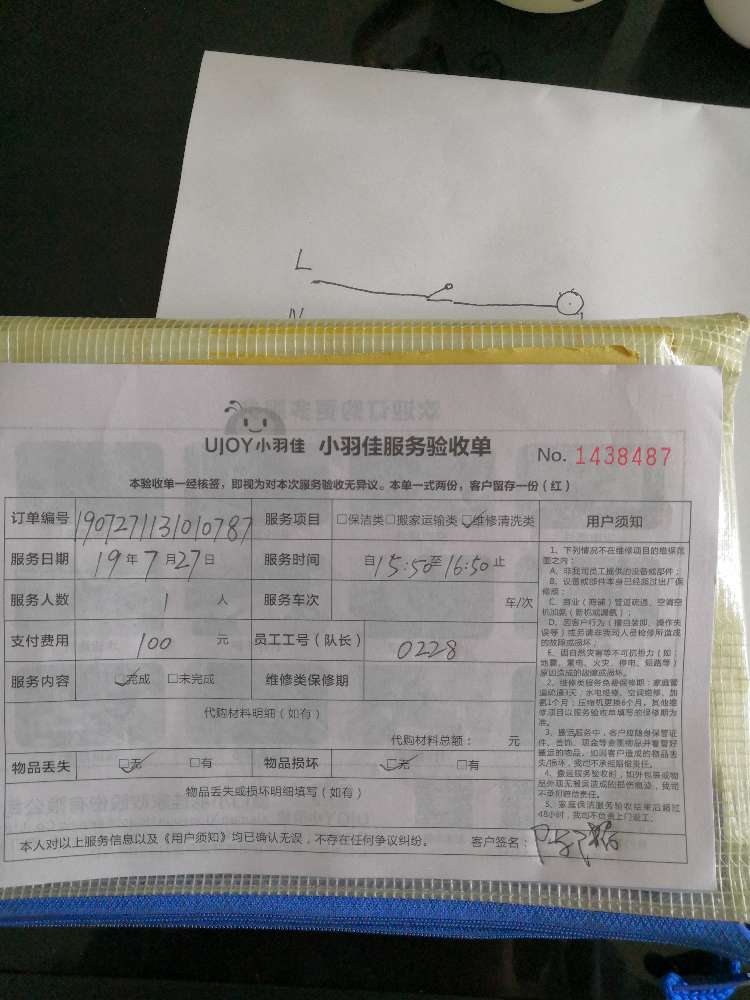 L
N
UJOY小羽佳 小羽佳服务验收单 No. 1438487
本验收单一经核签，即视为对本次服务验收无异议。本单一式两份，客户留存一份（红）
订单编号 1907271131010787 服务项目 □保洁类□搬家运输类☑维修清洗类
服务日期 19年7月27日 服务时间 自15:50至16:50止
服务人数 1 人 服务车次 车/次
支付费用 100 元 员工工号（队长） 0228
服务内容 ☑完成 □未完成 维修类保修期
代购材料明细（如有）
代购材料总额： 元
物品丢失 ☑无 □有 物品损坏 ☑无 □有
物品丢失或损坏明细填写（如有）
本人对以上服务信息以及《用户须知》均已确认无误，不存在任何争议纠纷。 客户签名：
用户须知
1、下列情况不在维修项目的维保范
围之内：
A、非我司员工提供的设备或部件；
B、设备或部件本身已经超过出厂保
修期；
C、商业（商铺）管道疏通、空调空
机加氨（新机或漏氨）；
D、因客户行为（擅自装卸、操作失
误等）或另请非我司人员检修所造成
的故障或损坏；
E、因自然灾害等不可抗拒力（如：
地震、雷电、火灾、停电、短路等）
原因造成的故障或损坏。
2、维修类服务免费保修期：家庭管
道疏通3天；水电维修、空调维修、加
氨1个月；压缩机更换6个月，其他维
修项目以服务验收单填写的保修期为
准。
3、搬运服务中，客户应随身保管证
件、首饰、现金等贵重物品并看管好
搬运的物品，如因客户造成的物品丢
失/损坏，我司不承担赔偿责任。
4、搬运服务验收时，如外包装或物
品外观无搬运造成的损伤痕迹，我司
不承担赔偿责任。
5、家庭保洁服务验收结束后超过
48小时，我司不负责上门返工。